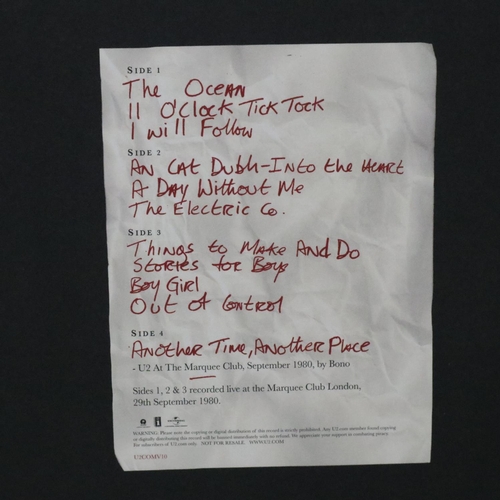 SIDE 1
The Ocean
11 O'Clock Tick Tock
I will Follow
SIDE 2
An Cat Dubh-Into the Heart
A Day Without Me
The Electric Co.
SIDE 3
Things to Make And Do
Stories for Boys
Boy Girl
Out of Control
SIDE 4
Another Time, Another Place
- U2 At The Marquee Club, September 1980, by Bono
Sides 1, 2 & 3 recorded live at the Marquee Club London,
29th September 1980.
WARNING: Please note the copying or digital distribution of this record is strictly prohibited. Any U2.com member found copying
or digitally distributing this record will be banned immediately with no refund. We appreciate your support in combating piracy
for subscribers of U2.com only. NOT FOR RESALE WWW.U2.COM
U2COMV10